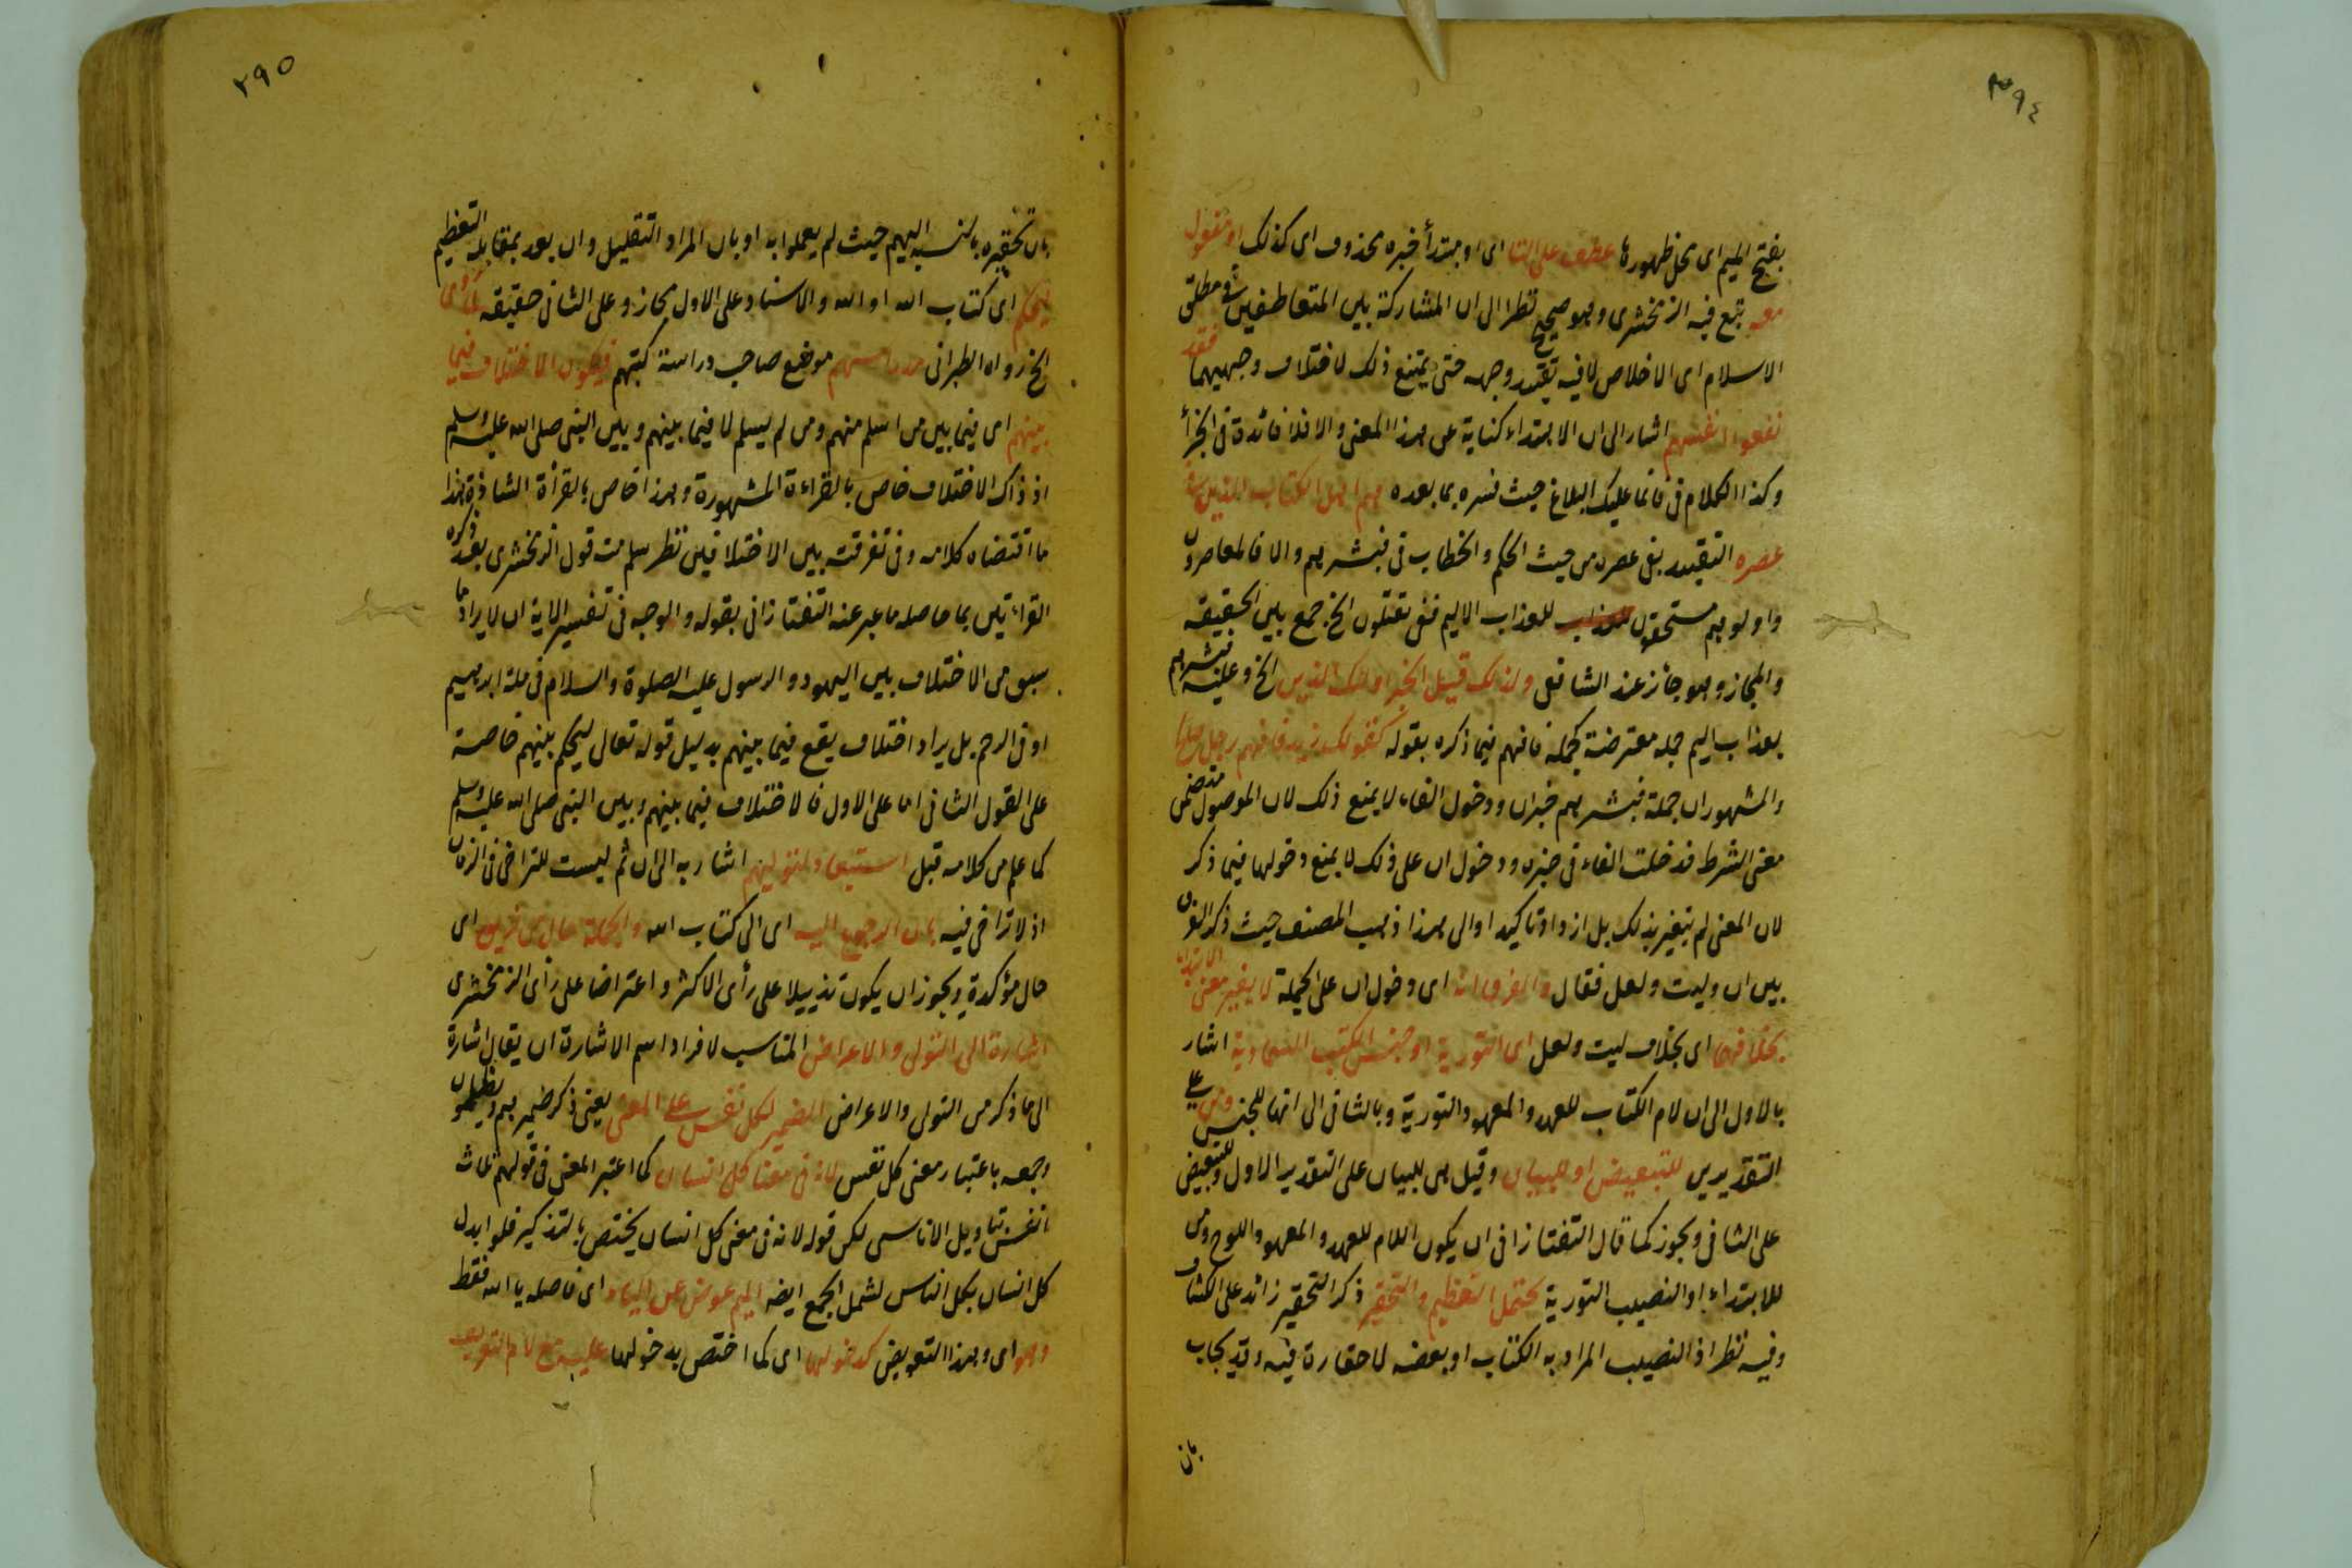 ٣٩٤
بفتح الميم اى محل ظهورها عطف على التا اى او مبتدأ خبره محذوف اى كذلك او مفعول
معه تبع فيه الزمخشرى وهو صحيح نظرا الى ان المشاركة بين المتعاطفين فى مطلق
الاسلام اى الاخلاص لا فيه بقيد وجهه حتى يمتنع ذلك لاختلاف وجهيهما فقد
نفعوا انفسهم اشار الى ان الابتداء كناية عن هذا المعنى والا فلا فائدة فى الجزأ
وكذا الكلام فى فانما عليك البلاغ حيث فسره بما بعده هم اهل الكتاب الذين فى
عصره التقييد بفى عصره من حيث الحكم والخطاب فى فبشرهم والا فالمعاصرون
واولوهم مستحقون للعذاب الاليم ففى يقتلون الخ جمع بين الحقيقة
والمجاز وهو جائز عند الشافعى ولذلك قيل الخبر اولئك الذين الخ وعليه فبشرهم
بعذاب اليم جملة معترضة كجملة فافهم فيما ذكره بقوله كقولك زيد فافهم رجل صالح
والمشهور ان جملة فبشرهم خبر ان ودخول الفاء لا يمنع ذلك لان الموصول متضمن
معنى الشرط فدخلت الفاء فى خبره ودخول ان على ذلك لا يمنع دخولها فيما ذكر
لان المعنى لم يتغير بذلك بل ازداد تاكيدا والى هذا ذهب المصنف حيث ذكر الفرق
بين ان وليت ولعل فقال والفرق انه اى دخول ان على الجملة لا يغير معنى الابتداء
بخلافهما اى بخلاف ليت ولعل اى التورية او جنس الكتب السماوية اشار
بالاول الى ان لام الكتاب للعهد والمعهود التورية وبالثانى الى انها للجنس ومن على
التقديرين للتبعيض او للبيان وقيل هى للبيان على التقدير الاول وللتبعيض
على الثانى ويجوز كما قال التفتازانى ان يكون اللام للعهد والمعهود اللوح ومن
للابتداء او النصيب التورية يحتمل التعظيم والتحقير ذكر التحقير زائد على الكشاف
وفيه نظر اذ النصيب المراد به الكتاب او بعضه لا حقارة فيه وقد يجاب
بان
٢٩٥
بان تحقيره بالنسبة اليهم حيث لم يعملوا به او بان المراد التقليل وان بعد بمقابلة التعظيم
ليحكم اى كتاب الله او الله والاسناد على الاول مجاز وعلى الثانى حقيقة لما روى
الخ رواه الطبرانى مدراسهم موضع صاحب دراسة كتبهم فيكون الاختلاف فيما
بينهم اى فيما بين من اسلم منهم ومن لم يسلم لا فيما بينهم وبين النبى صلى الله عليه وسلم
اذ ذاك الاختلاف خاص بالقراءة المشهورة وهذا خاص بالقرأة الشاذة هذا
ما اقتضاه كلامه وفى تفرقته بين الاختلافين نظر سلمت قول الزمخشرى بعد ذكره
القراءتين بما حاصله ما عبر عنه التفتازانى بقوله والوجه فى تفسير الاية ان لا يراد ما
سبق من الاختلاف بين اليهود والرسول عليه الصلوة والسلام فى ملة ابرهيم
او فى الرجم بل يراد اختلاف يقع فيما بينهم بدليل قوله تعالى ليحكم بينهم خاصة
على القول الثانى اما على الاول فالاختلاف فيما بينهم وبين النبى صلى الله عليه وسلم
كما علم من كلامه قبل استبعاد لتوليهم اشار به الى ان ثم ليست للتراخى فى الزمان
اذ لا تراخى فيه بان الرجوع اليه اى الى كتاب الله والجملة حال من فريق اى
حال مؤكدة ويجوز ان يكون تذييلا على رأى الاكثر واعتراضا على رأى الزمخشرى
اشارة الى التولى والاعراض المناسب لافراد اسم الاشارة ان يقال اشارة
الى ما ذكر من التولى والاعراض الضمير لكل نفس على المعنى يعنى ذكر ضمير هم ويظلمون
وجمعه باعتبار معنى كل نفس لانه فى معنى كل انسان كما اعتبر المعنى فى قولهم ثلاث
انفس بتاويل الاناسى لكن قوله لانه فى معنى كل انسان يختص بالتذكير فلو ابدل
كل انسان بكل الناس لشمل الجمع ايضا الميم عوض عن الياء اى فاصله يا الله فقط
وهو اى وهذا التعويض كدخولها اى كما اختص بدخولها عليه مع لام التعريف